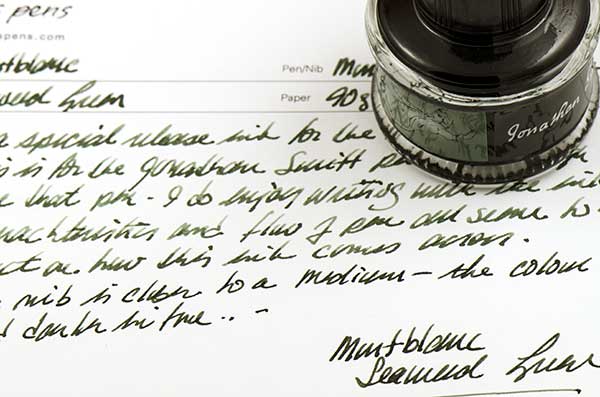 pens
spens.com
ntblanc
Pen/Nib
Mon
aweed Green
Paper
90g
Jonathan
a special release ink for the
is is for the Jonathan Swift p
e that pen - I do enjoy writing with the ink
rachteristics and flow of pen all seem to
ct on how this ink comes across.
nib is closer to a medium - the colour
d darker in tone .. -
Montblanc
Seaweed Green